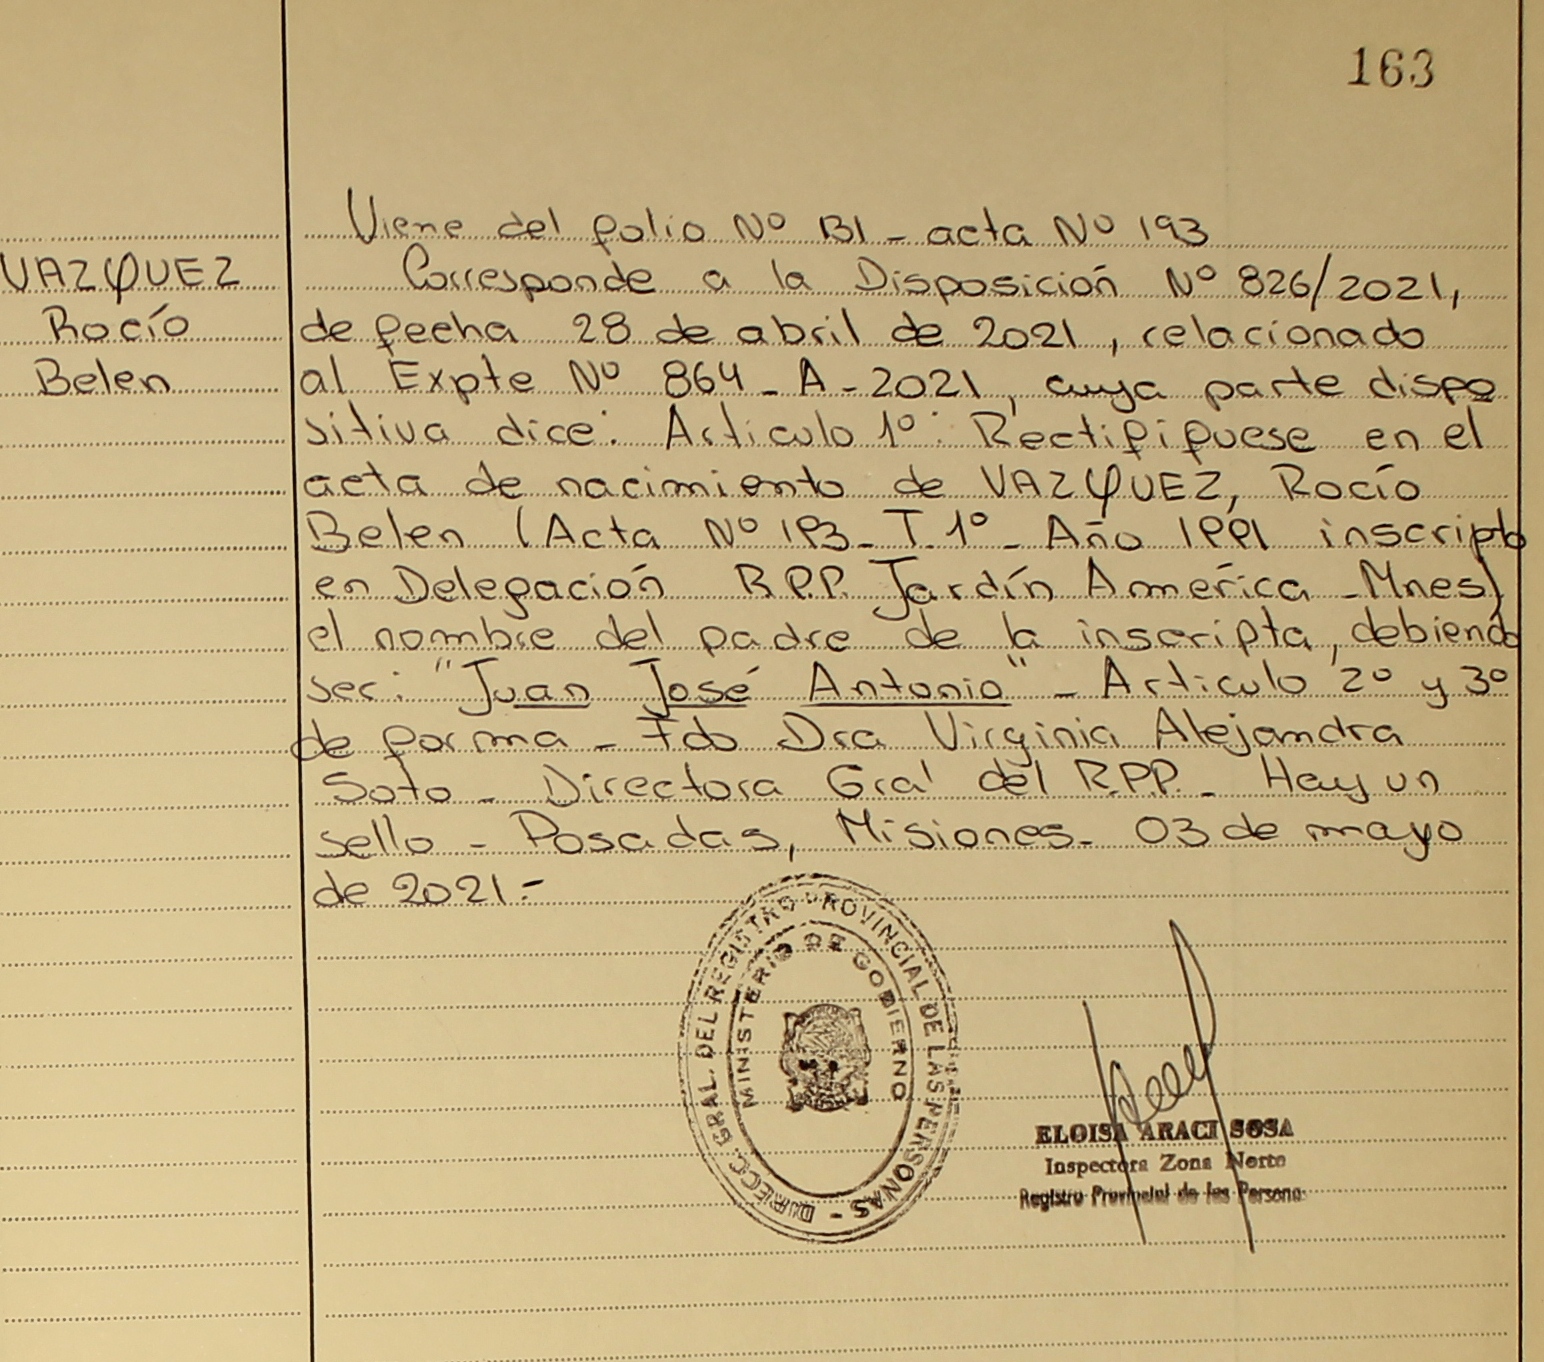 163
Viene del folio Nº 131 - acta Nº 193
VAZQUEZ
Rocío
Belen
Corresponde a la Disposición Nº 826/2021,
de fecha 28 de abril de 2021, relacionado
al Expte Nº 864 - A - 2021, cuya parte dispo
sitiva dice: Articulo 1º: Rectififuese en el
acta de nacimiento de VAZQUEZ, Rocío
Belen (Acta Nº 193 - T. 1º - Año 1991 inscripto
en Delegación R.P.P. Jardín América - Mnes)
el nombre del padre de la inscripta, debiendo
ser: "Juan José Antonio" - Articulo 2º y 3º
de forma - Fdo Dra Virginia Alejandra
Soto - Directora Gral del R.P.P. - Hay un
sello - Posadas, Misiones - 03 de mayo
de 2021.-
DIRECC. GRAL. DEL REGISTRO PROVINCIAL DE LAS PERSONAS -
MINISTERIO DE GOBIERNO
ELOISA ARACI SOSA
Inspectora Zona Norte
Registro Provincial de las Personas